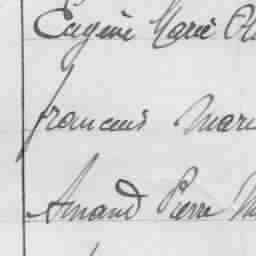 Eugène Marie
francois Mari
Amand Pierre M